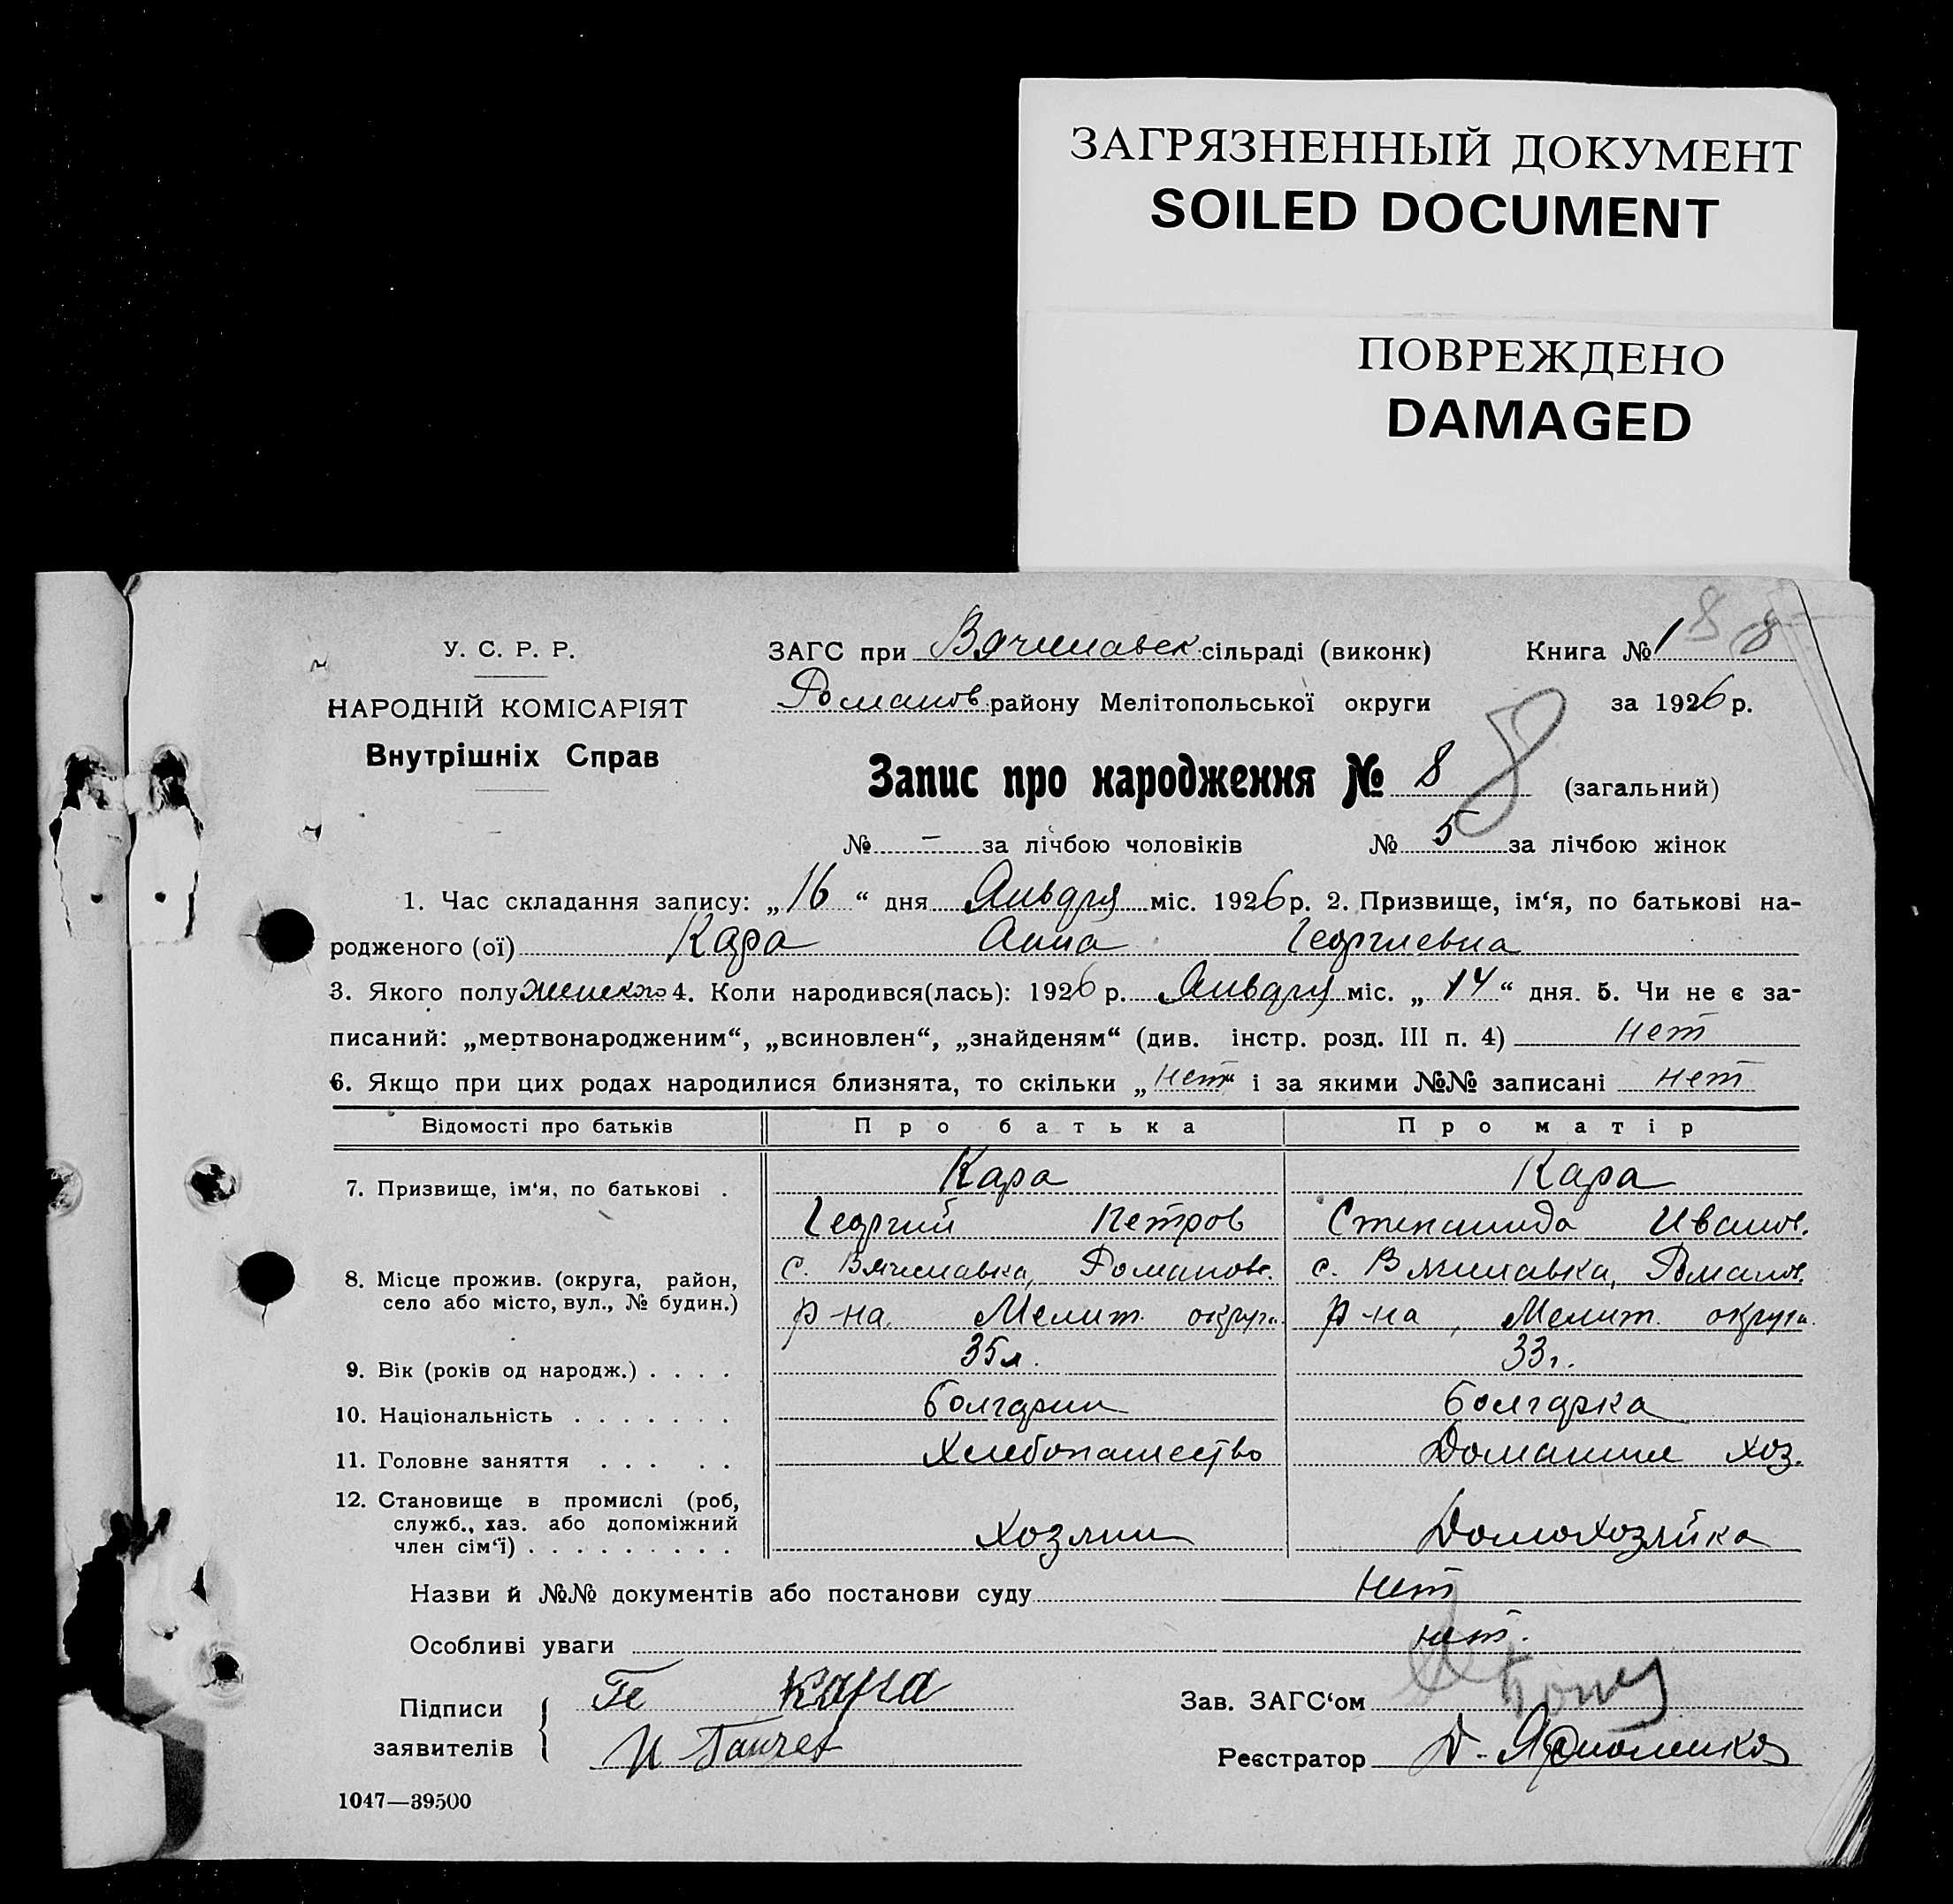 ЗАГРЯЗНЕННЫЙ ДОКУМЕНТ
SOILED DOCUMENT
ПОВРЕЖДЕНО
DAMAGED
8 8
У. С. Р. Р.
НАРОДНІЙ КОМІСАРІЯТ
Внутрішніх Справ
ЗАГС при Вячеславск сільраді (виконк) Книга № 1
Романов району Мелітопольської округи за 1926 р.
8
Запис про народження № 8 (загальний)
№ – за лічбою чоловіків № 5 за лічбою жінок
1. Час складання запису: „16“ дня Января міс. 1926 р. 2. Призвище, ім‘я, по батькові на-
родженого (ої) Кара Анна Георгиевна
3. Якого полу женского 4. Коли народився(лась): 1926 р. Января міс. „14“ дня. 5. Чи не є за-
писаний: „мертвонародженим“, „всиновлен“, „знайденям“ (див. інстр. розд. III п. 4) нет
6. Якщо при цих родах народилися близнята, то скільки „нет“ і за якими №№ записані нет
Відомості про батьків Про батька Про матір
7. Призвище, ім‘я, по батькові . Кара Кара
Георгий Петров Степанида Иванов.
8. Місце прожив. (округа, район, село або місто, вул., № будин.) с. Вячеславка, Романов. с. Вячеславка, Романов.
р-на, Мелит. округа р-на, Мелит. округа.
9. Вік (років од народж.) . . . . 35 л. 33 г.
10. Національність . . . . . . . болгарин болгарка
11. Головне заняття . . . . . Хлебопашество Домашнее хоз.
12. Становище в промислі (роб,
служб., хаз. або допоміжний
член сім‘ї) . . . . . . . . . Хозяин Домохозяйка
Назви й №№ документів або постанови суду нет
Особливі уваги нет.
Підписи
заявителів
Ге Кара
И Ганчев
Зав. ЗАГС‘ом
Реєстратор Д. Ярмоленко
1047—39500